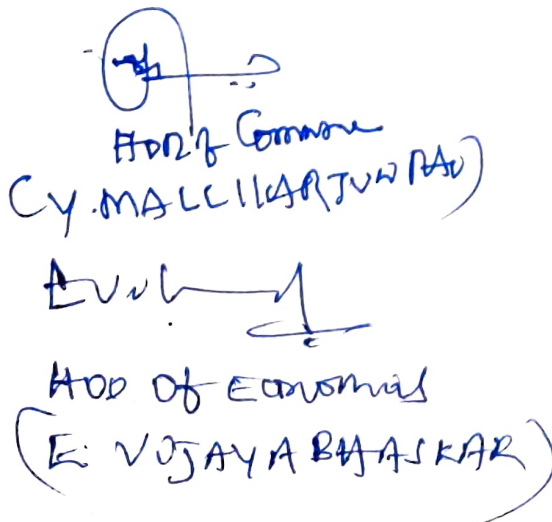 HOD of Commerce
(Y. MALLIKARJUN RAO)
HOD of Economics
(E. VIJAYA BHASKAR)